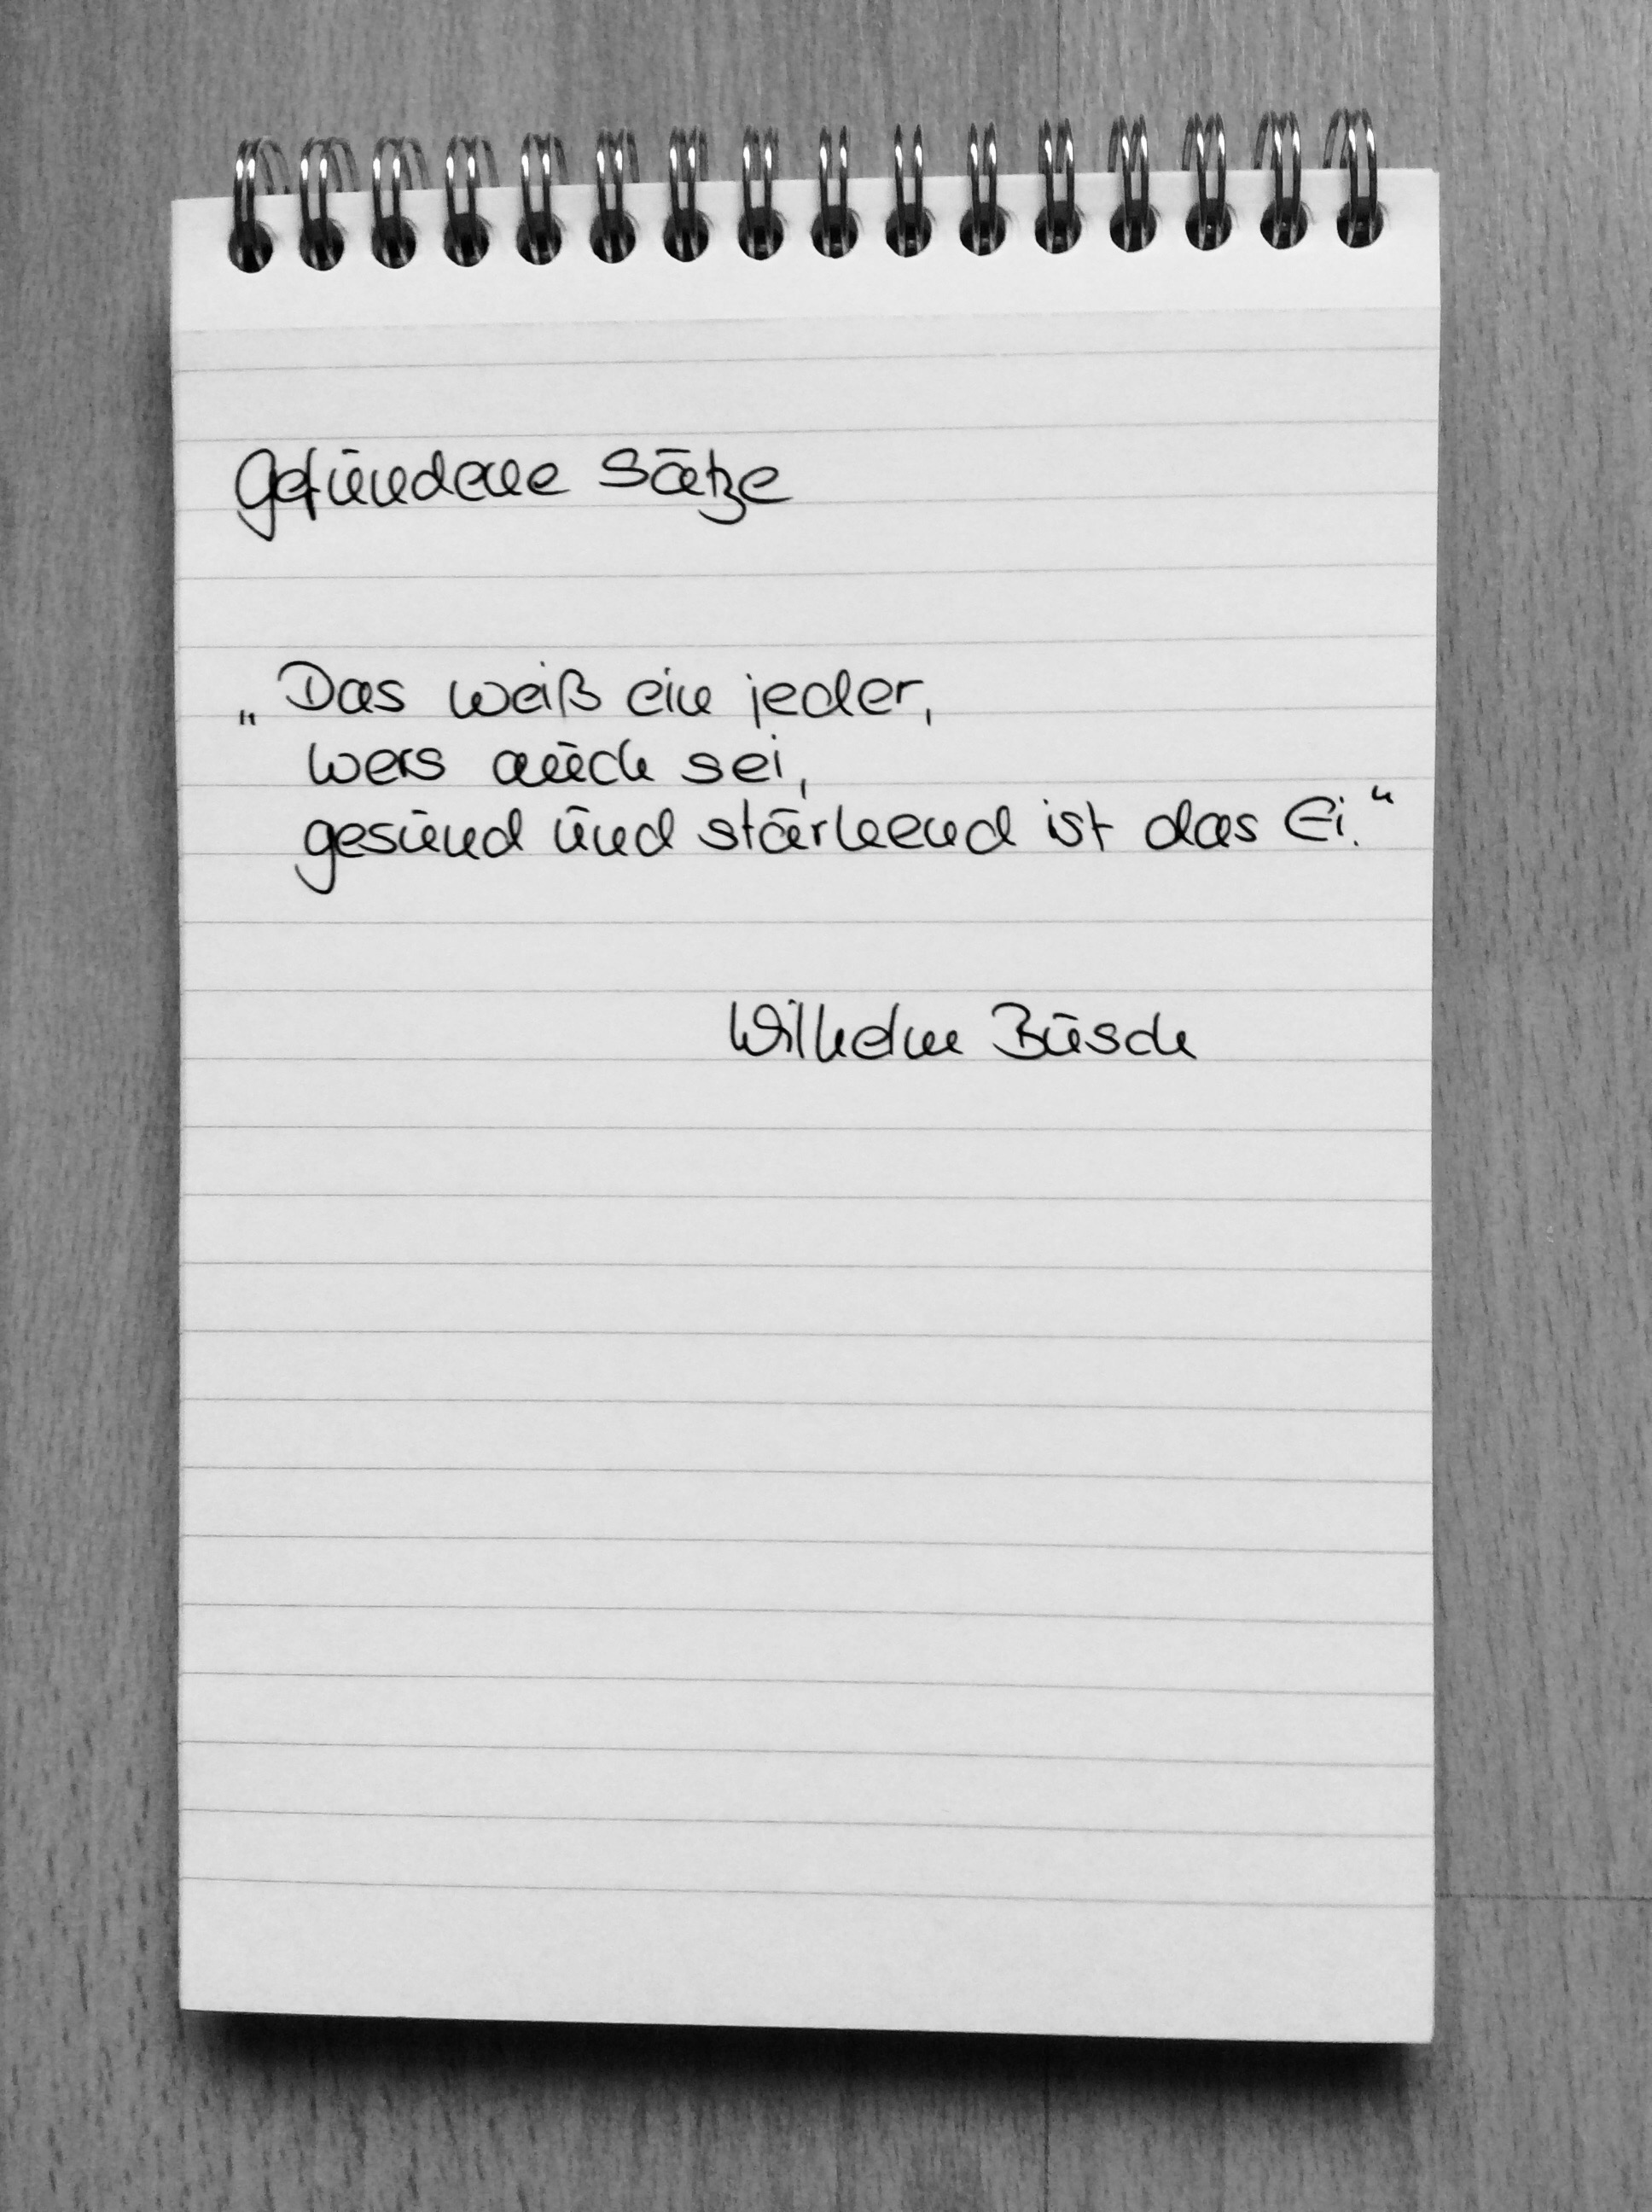 Gefundene Sätze
„Das weiß ein jeder,
wers auch sei,
gesund und stärkend ist das Ei.“
Wilhelm Busch